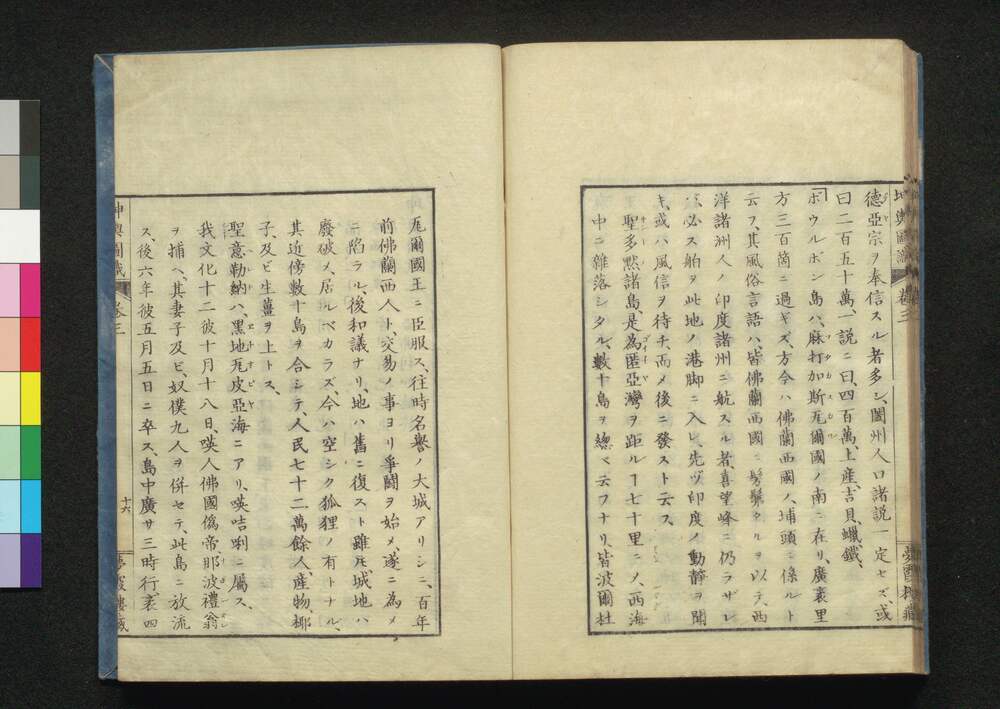 坤輿圖識 卷三
夢霞樓藏
德亞宗ヲ奉信スル者多シ、閤州人口諸説一定セズ、或
曰二百五十萬、一説ニ曰、四百萬、土産、吉貝、蠟、鐵、
「ボウルボン島ハ、麻打加斯瓦爾國ノ南ニ在リ、廣袤里
方三百箇ニ過ギズ、方今ハ佛蘭西國ノ、埔頭ニ係ルト
云フ、其風俗言語ハ、皆佛蘭西國ニ髣髴タルヲ以テ、西
洋諸洲人ノ印度諸州ニ航スル者、喜望峰ニ仍ラザレ
ハ、必ス舶ヲ此地ノ港脚ニ入レ、先ヅ印度ノ動靜ヲ聞
キ、或ハ風信ヲ待チ、而メ後ニ發スト云フ、
聖多黙諸島、是為匿亞灣ヲ距ルヿ七十里ニメ、西海
中ニ雜落シタル、數十島ヲ總ベ云フナリ、皆波爾杜
尾爾國王ニ臣服ス、往時名譽ノ大城アリシニ、百年
前佛蘭西人ト、交易ノ事ヨリ爭鬪ヲ始メ、遂ニ為メ
ニ陷ラル、後和議ナリ、地ハ舊ニ復スト雖𪜈、城地ハ
廢破メ、居ルベカラズ、今ハ空シク狐狸ノ有トナル、
其近傍數十島ヲ合シテ、人民七十二萬餘人、産物、椰
子、及ビ生薑ヲ上トス、
聖意勒納ハ、黒地兀皮亞海ニアリ、暎咭唎ニ屬ス、
我文化十二彼十月十八日、暎人佛國僞帝、那波禮翁
ヲ捕ヘ、其妻子及ビ、奴僕九人ヲ併セテ、此島ニ放流
ス、後六年彼五月五日ニ卒ス、島中廣サ三時行、袤四
坤輿圖識 卷三
十六
夢霞樓藏